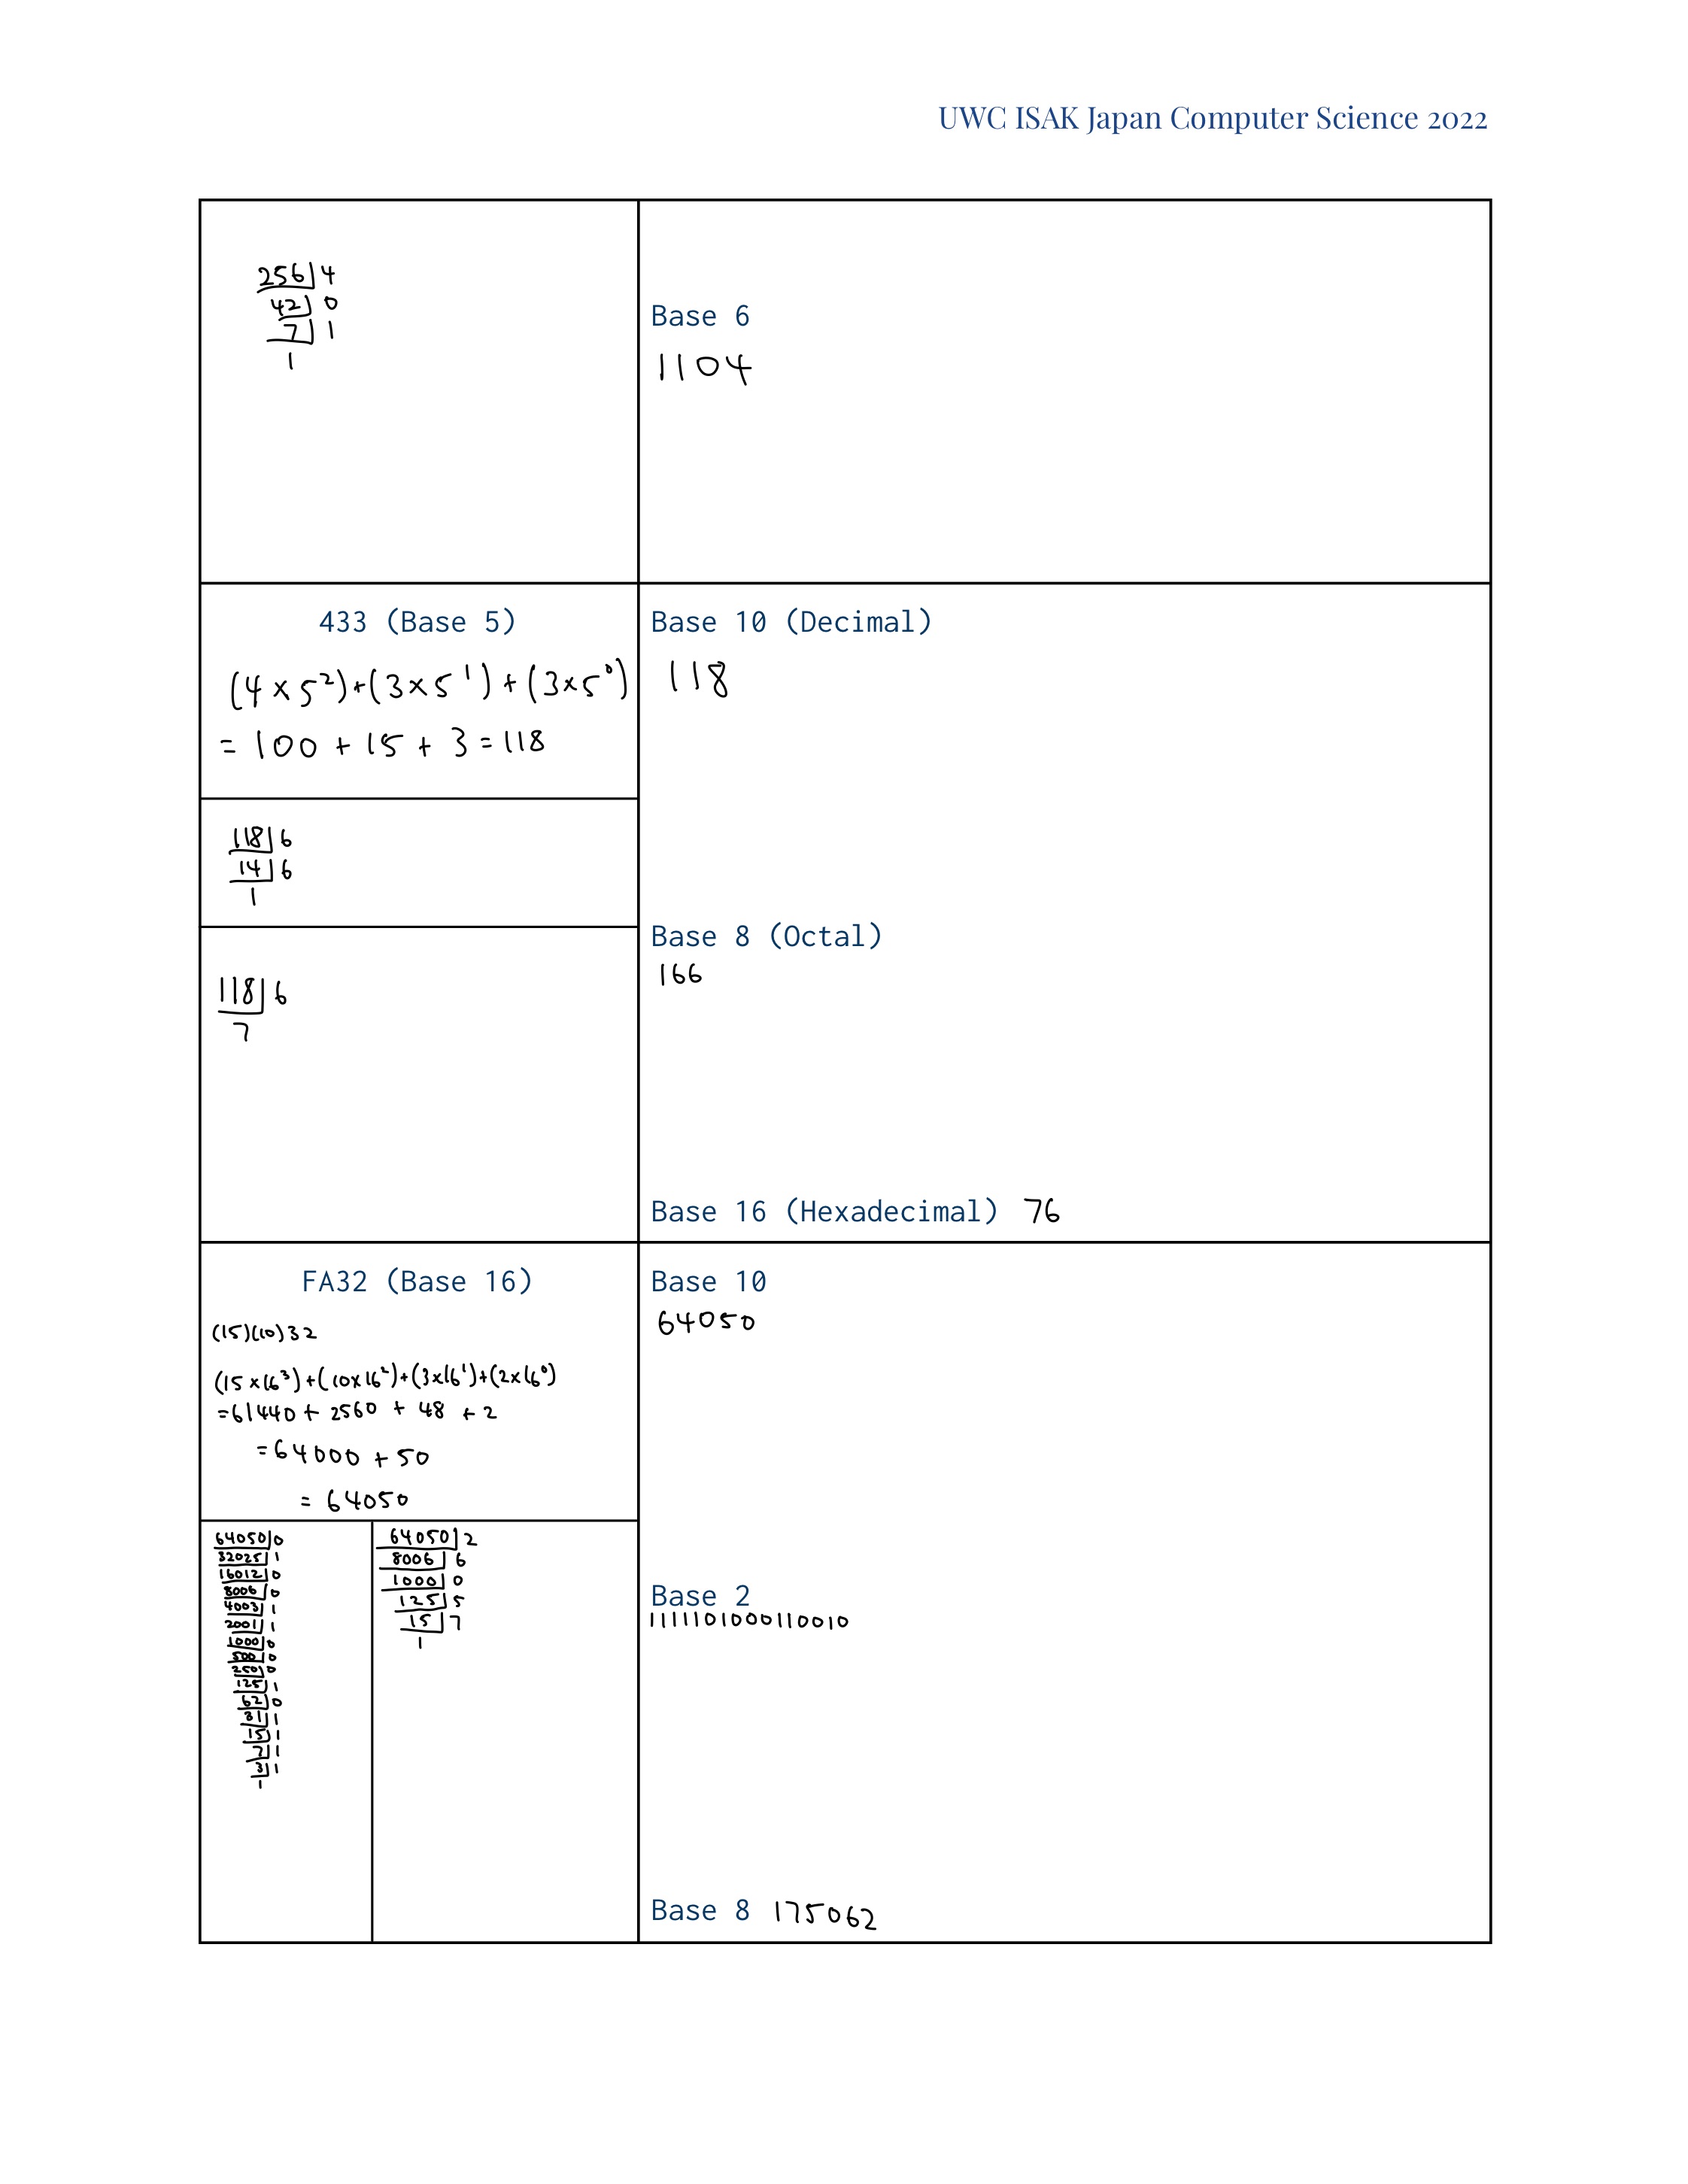 UWC ISAK Japan Computer Science 2022
256 4
42 0
7 1
1
Base 6
1104
433 (Base 5)
(4 × 5²)+(3×5¹)+(3×5⁰)
= 100 + 15 + 3 = 118
Base 10 (Decimal)
118
118 6
14 6
1
Base 8 (Octal)
166
118 6
7
Base 16 (Hexadecimal) 76
FA32 (Base 16)
(15)(10)32
(15×16³)+(10×16²)+(3×16¹)+(2×16⁰)
=61440+ 2560 + 48 + 2
=64000 + 50
= 64050
Base 10
64050
64050 0
32025 1
16012 0
8006 0
4003 1
2001 1
1000 0
500 0
250 0
125 1
62 0
31 1
15 1
7 1
3 1
1
64050 2
8006 6
1000 0
125 5
15 7
1
Base 2
1111101000110010
Base 8 175062